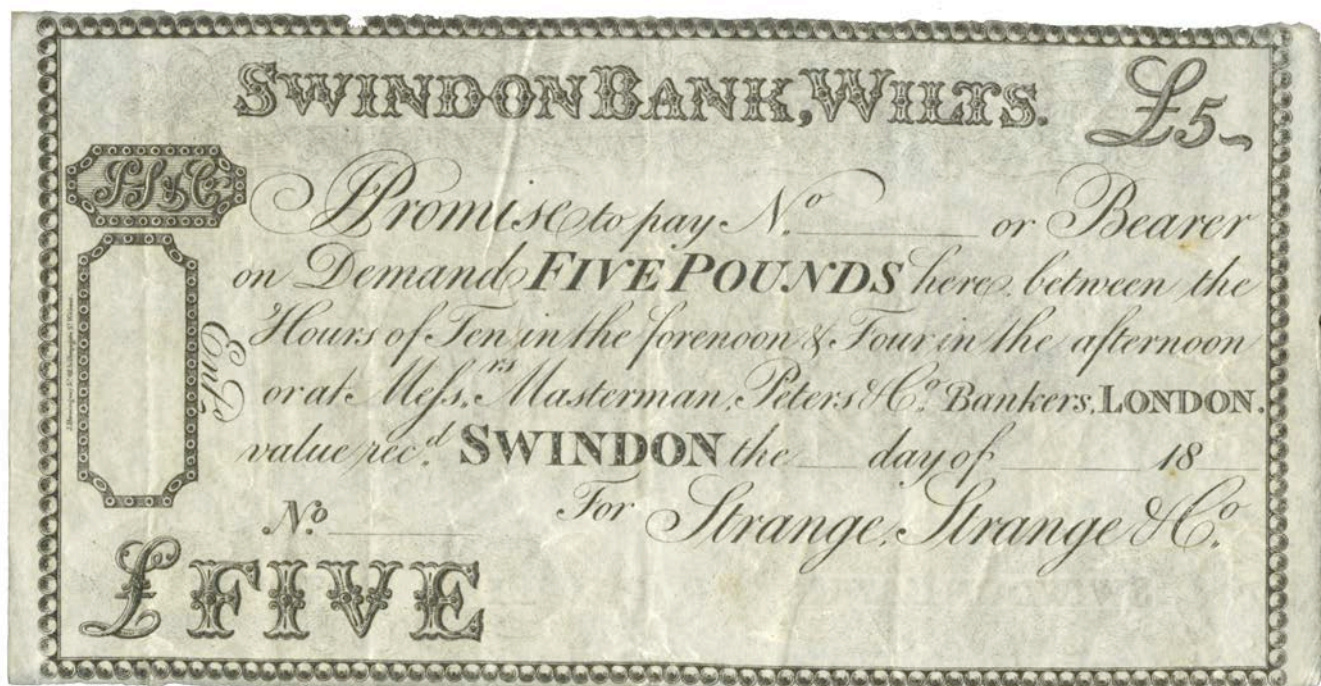 SWINDON BANK, WILTS. £5
SS & Co.
I Promise to pay No. or Bearer
on Demand FIVE POUNDS here, between the
Hours of Ten in the forenoon & Four in the afternoon
or at Messrs. Masterman, Peters & Co. Bankers, LONDON.
value recd. SWINDON the day of 18
Entd.
No. For Strange, Strange & Co.
£ FIVE